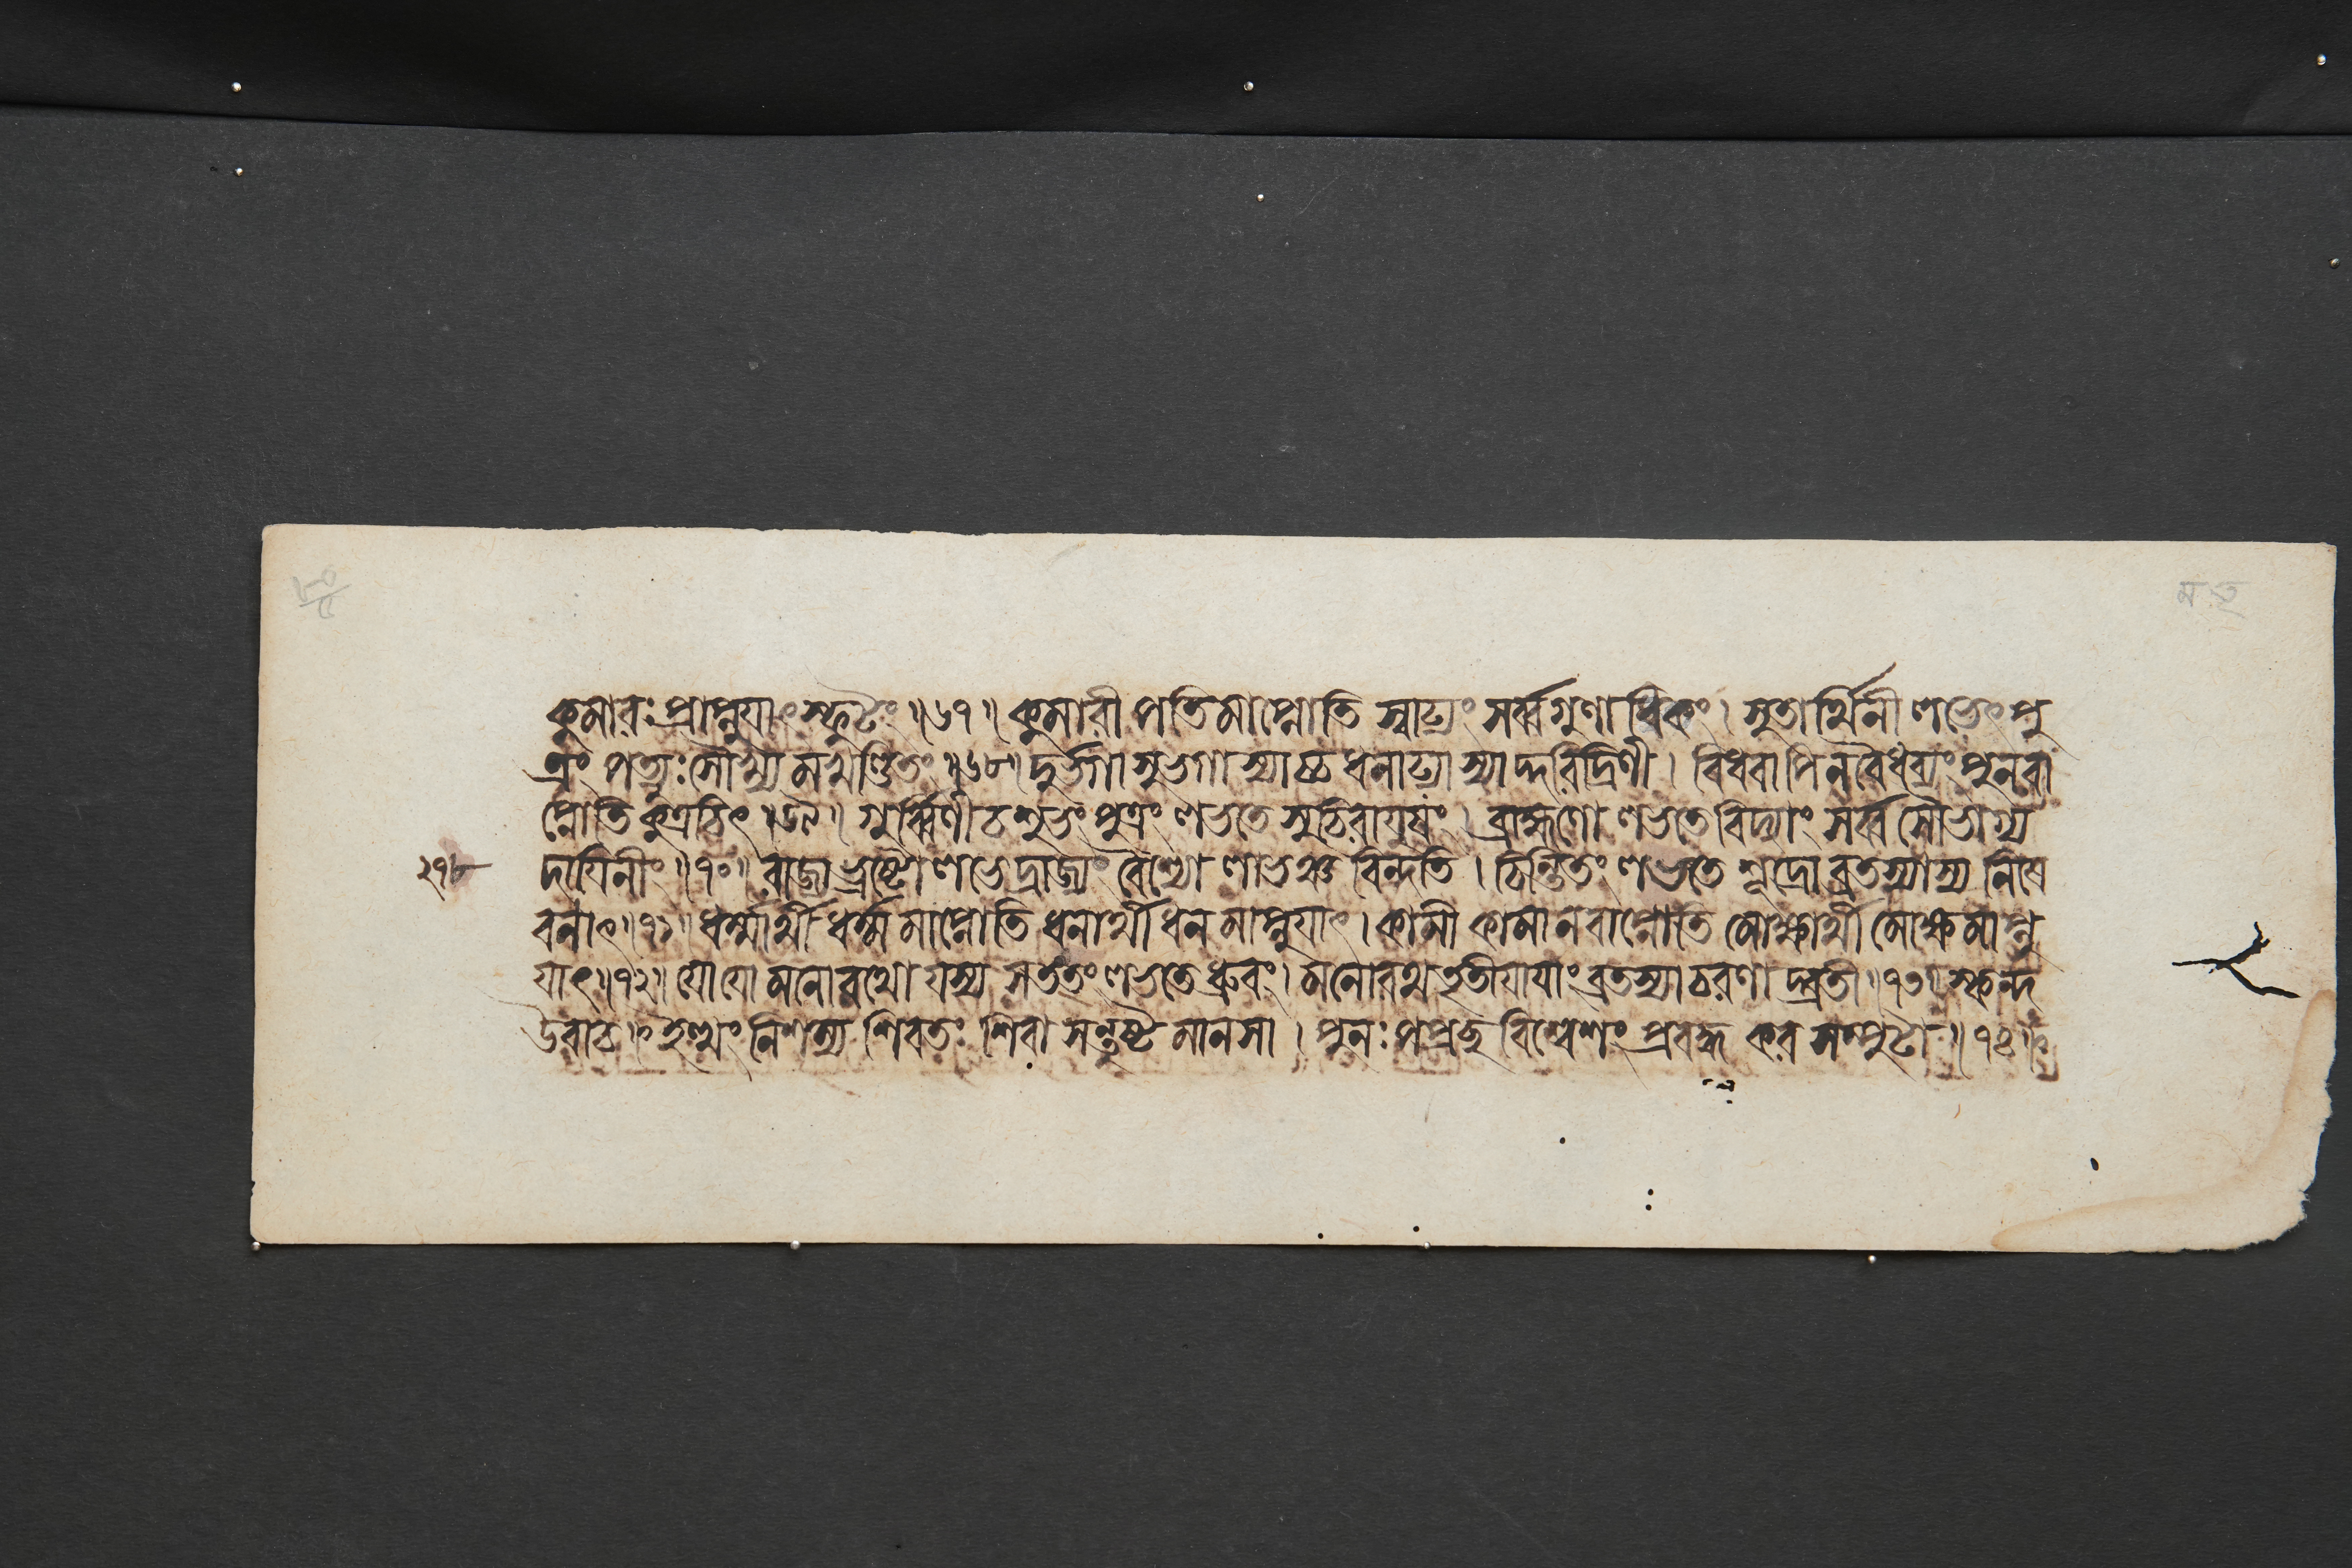 কুমারঃ প্রাপ্নুযাৎ স্ফুটং ॥৬৭॥ কুমারী পতিমাপ্নোতি স্বাঢ্যং সর্ব্বগুণাধিকং । সুতার্থিনী লভেৎ পু
ত্রং পত্যুঃ সৌখ্যমখণ্ডিতং ॥৬৮॥ দুর্ভগা সুভগা স্যাচ্চ ধনাঢ্যা স্যাদ্দরিদ্রিণী । বিধবাপি ন বৈধব্যং পুনরা
প্নোতি কুত্রচিৎ ॥৬৯॥ গুর্ব্বিণী চ শুভং পুত্রং লভতে সুচিরাযুষং । ব্রাহ্মণো লভতে বিদ্যাং সর্ব্বসৌভাগ্য
২৭৮
দাযিনীং ॥৭০॥ রাজ্যভ্রষ্টো লভেদ্রাজ্যং বৈশ্যো লাভঞ্চ বিন্দতি । চিন্তিতং লভতে শূদ্রো ব্রতস্যাস্য নিষে
বনাৎ ॥৭১॥ ধর্ম্মার্থী ধর্ম্মমাপ্নোতি ধনার্থী ধনমাপ্নুযাৎ । কামী কামানবাপ্নোতি মোক্ষার্থী মোক্ষমাপ্নু
যাৎ ॥৭২॥ যো যো মনোরথো যস্য স তং তং লভতে ধ্রুবং । মনোরথতৃতীযাযাং ব্রতস্যাচরণাদ্ব্রতী ॥৭৩॥ স্কন্দ
উবাচ ॥ ইত্থং নিশম্য শিবতঃ শিবা সন্তুষ্টমানসা । পুনঃ পপ্রচ্ছ বিশ্বেশং প্রবদ্ধকরসম্পুটা ॥৭৪॥